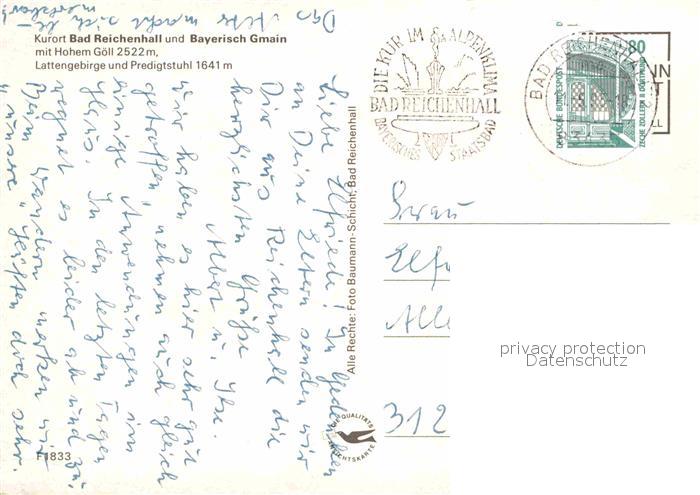 Kurort Bad Reichenhall und Bayerisch Gmain
mit Hohem Göll 2522 m,
Lattengebirge und Predigtstuhl 1641 m
Liebe Elfriede! In Gedenken
an Deine Eltern senden wir
Dir aus Reichenhall die
herzlichsten Grüße
Albert u. Ilse.
Wir haben es hier sehr gut
getroffen, nehmen auch gleich
einige Anwendungen im
Haus. In den letzten Tagen
regnet es leider ab und zu.
Beim Wandern merken wir
unsere Hüften doch sehr.
Das macht sich
Alle Rechte: Foto Baumann-Schicht, Bad Reichenhall
QUALITÄTS
ANSICHTSKARTE
F1833
DIE KUR IM ALPENKLIMA
BAD REICHENHALL
BAYERISCHES STAATSBAD
BAD REICHENHALL
80
DEUTSCHE BUNDESPOST
ZECHE ZOLLERN II DORTMUND
Frau
Elf
Alle
312
privacy protection
Datenschutz